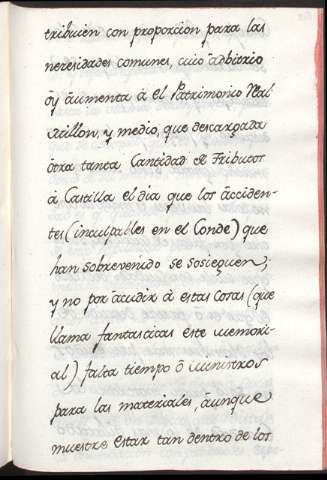 tribuien con proporcion para las
necesidades comunes, cuio adbitrio
oy áumenta á el Patrimonio Real
millon, y medio, que descargada
ótra tanta Cantidad de Tributos
á, Castilla el dia que los ácciden-
tes (inculpables en el Conde) que
han sobrevenido se sosieguen;
y no por ácudir á estas Cosas (que
llama fantasticas este memori-
al) falta tiempo ó ministros
para las materiales, áunque
muestre estar tan dentro de los